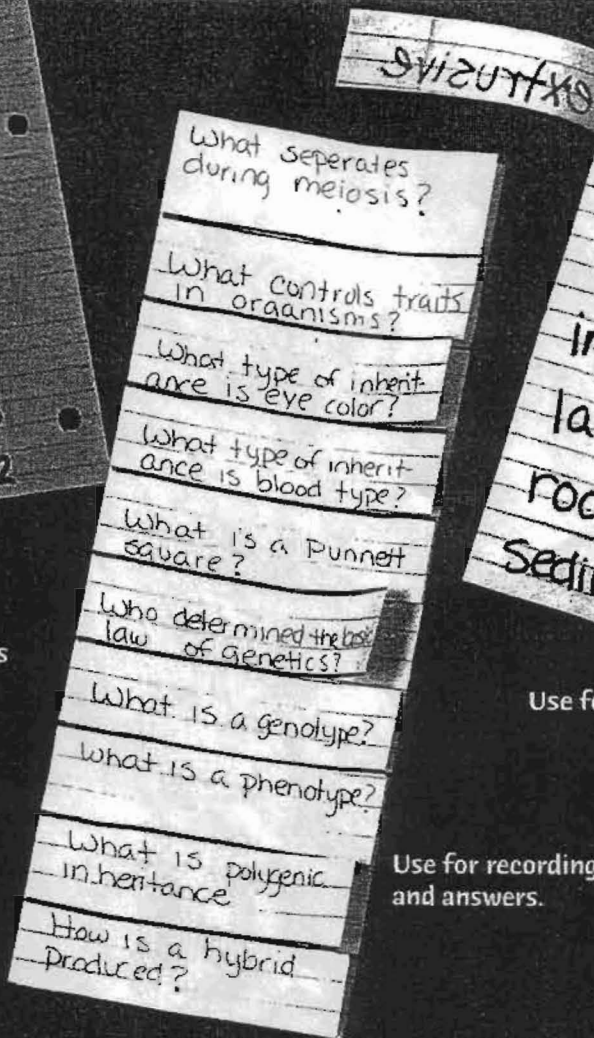 extrusive
What seperates
during meiosis?
What controls traits
in organisms?
What type of inherit-
ance is eye color?
What type of inherit-
ance is blood type?
What is a Punnett
square?
Who determined the basic
law of genetics?
What is a genotype?
What is a phenotype?
What is polygenic
inheritance
How is a hybrid
produced?
Use for recording
and answers.
Use